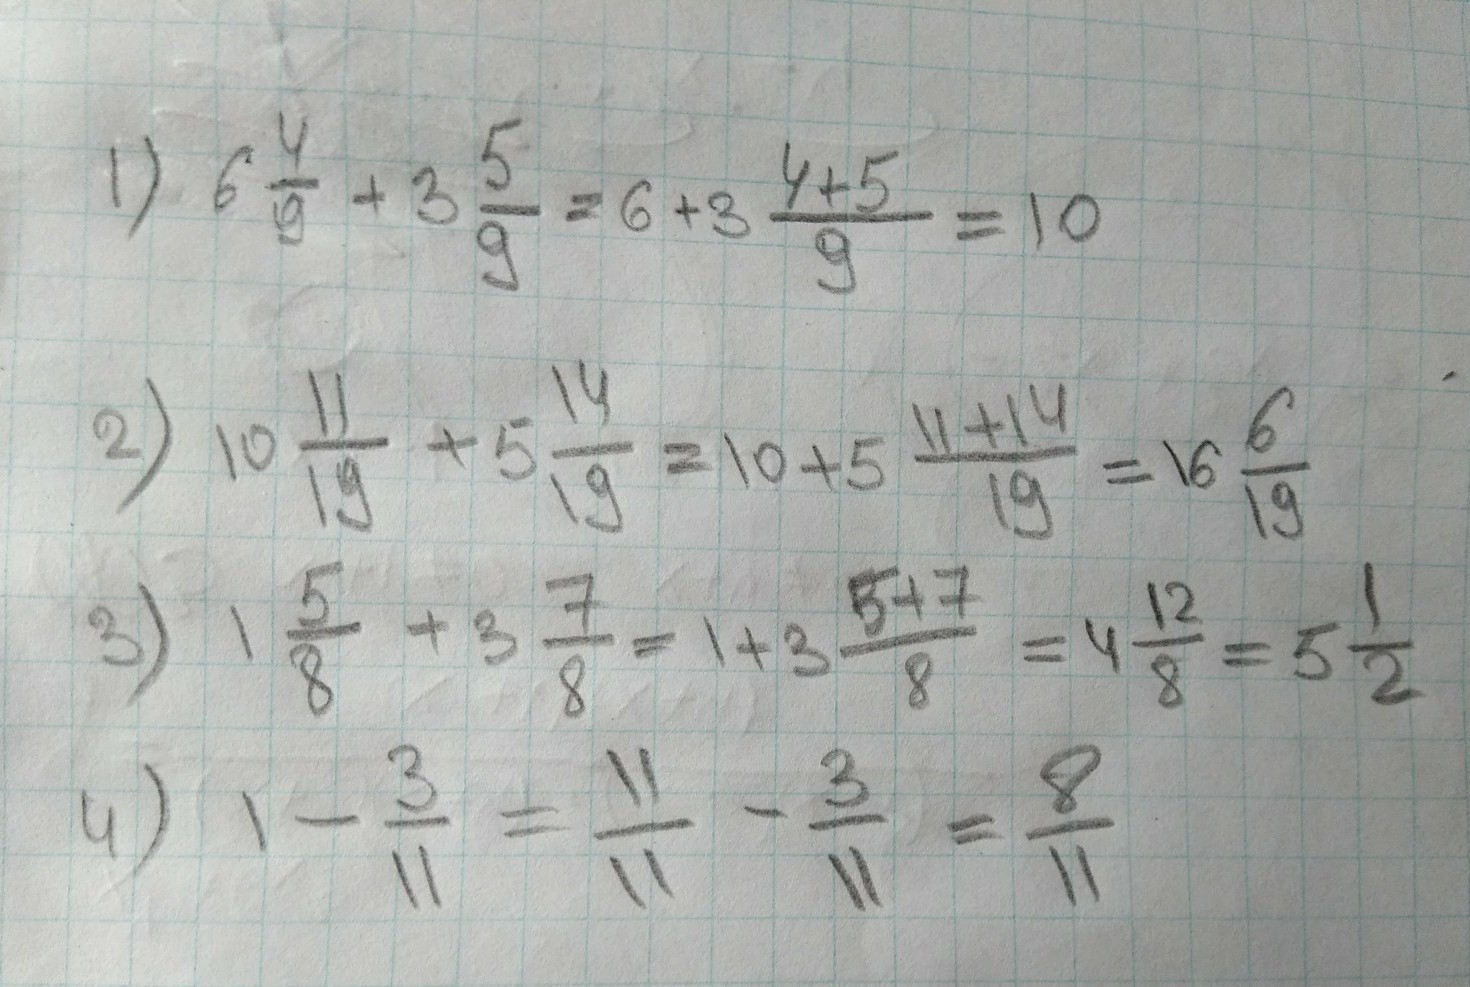 1) 6 4/9 + 3 5/9 = 6 + 3 (4+5)/9 = 10
2) 10 11/19 + 5 14/19 = 10 + 5 (11+14)/19 = 16 6/19
3) 1 5/8 + 3 7/8 = 1 + 3 (5+7)/8 = 4 12/8 = 5 1/2
4) 1 - 3/11 = 11/11 - 3/11 = 8/11